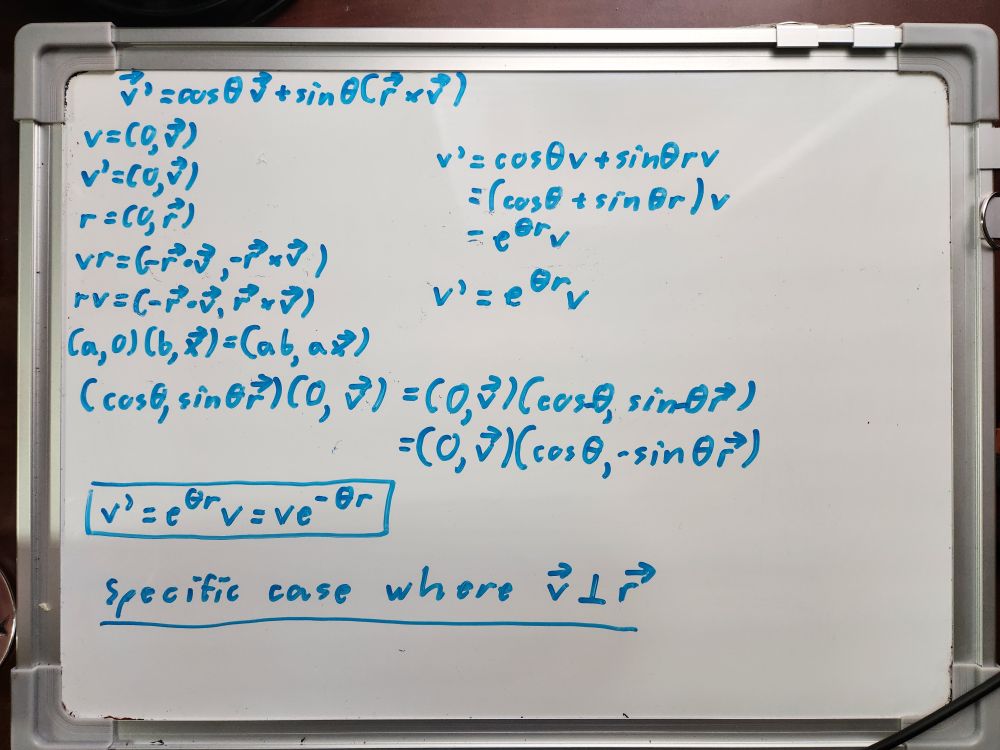 v⃗' = cosθ v⃗ + sinθ(r⃗ × v⃗)
v=(0,v⃗)
v'=(0,v⃗)
r=(0,r⃗)
vr=(-r⃗·v⃗, -r⃗×v⃗)
rv=(-r⃗·v⃗, r⃗×v⃗)
(a,0)(b,x⃗)=(ab, ax⃗)
v'=cosθv+sinθrv
=(cosθ+sinθr)v
=e^θr v
v'=e^θr v
(cosθ, sinθr⃗)(0, v⃗) =(0,v⃗)(cosθ, sinθr⃗)
=(0,v⃗)(cosθ,-sinθr⃗)
v'=e^θr v=ve^-θr
specific case where v⃗⊥r⃗